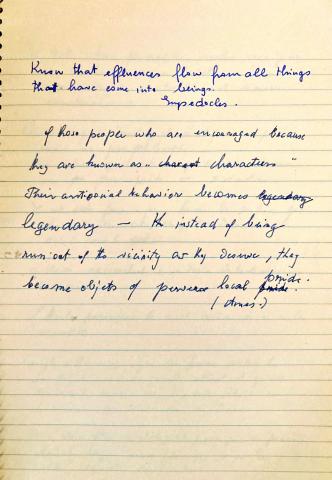 Know that effluences flow from all things
that have come into beings.
Empedocles.
of those people who are encouraged because
they are known as "charact characters"
Their antisocial behavior becomes legendary
legendary — instead of being
run out of the vicinity as they deserve, they
become objets of perverse local pride. pride.